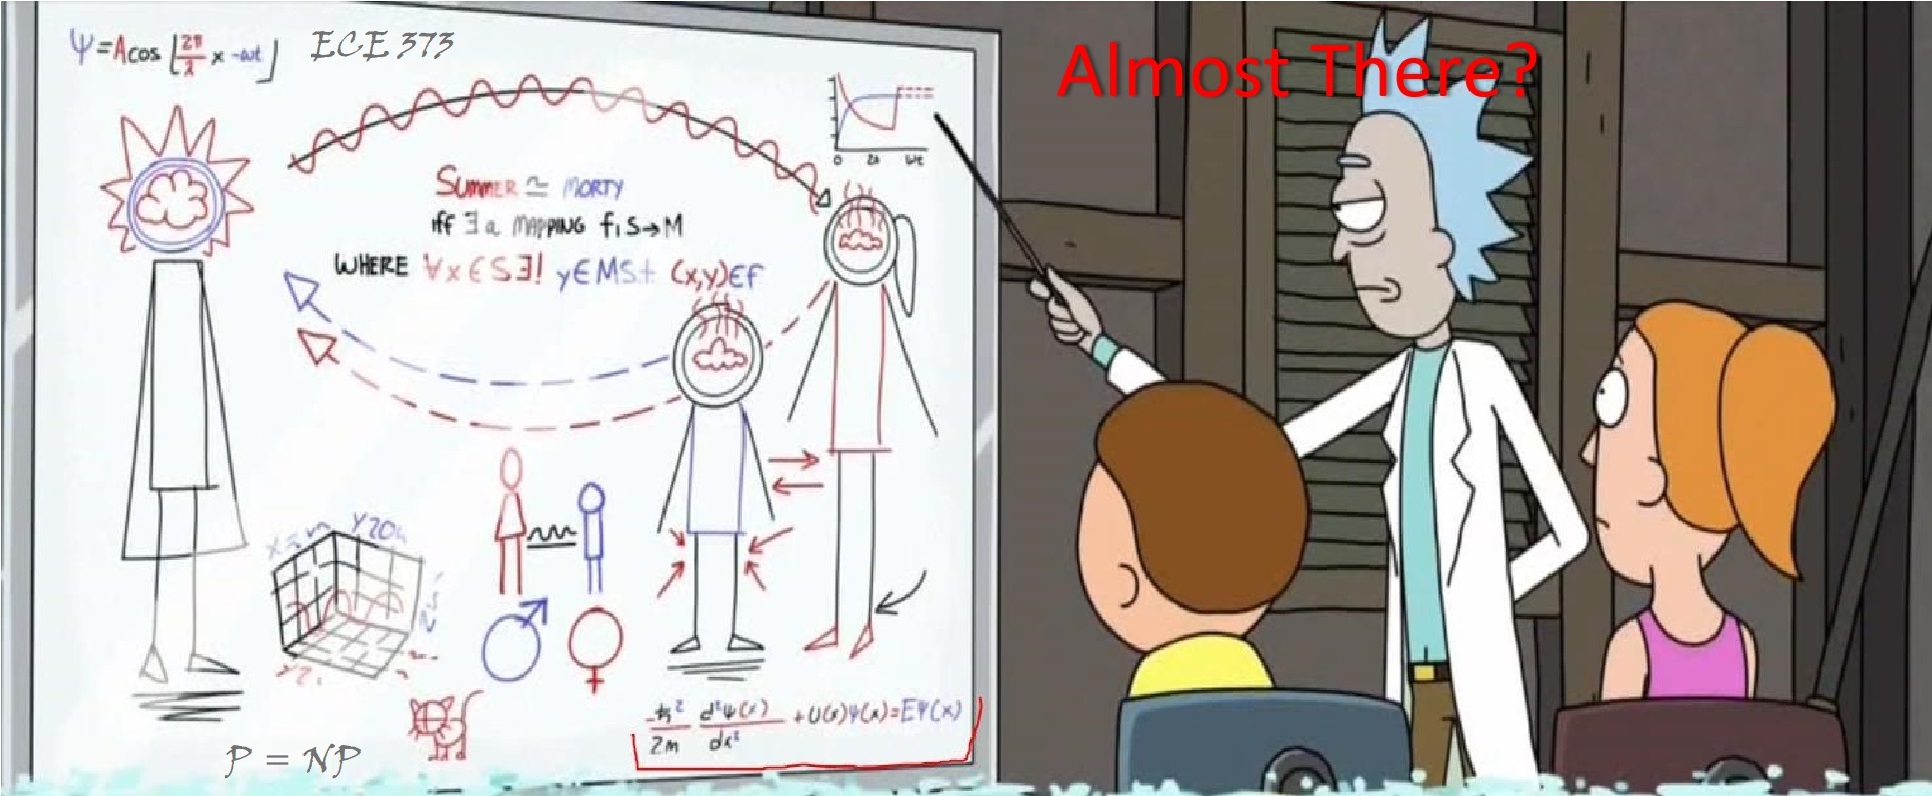 Ψ=Acos[2π/λ x -ωt]
ECE 373
Almost There?
0 2π ωt
SUMMER ≅ MORTY
iff ∃ a MAPPING f: S→M
WHERE ∀x∈S∃! y∈M S.t (x,y)∈f
Y20
-ħ²/2m d²Ψ(x)/dx² +U(x)Ψ(x)=EΨ(x)
P = NP